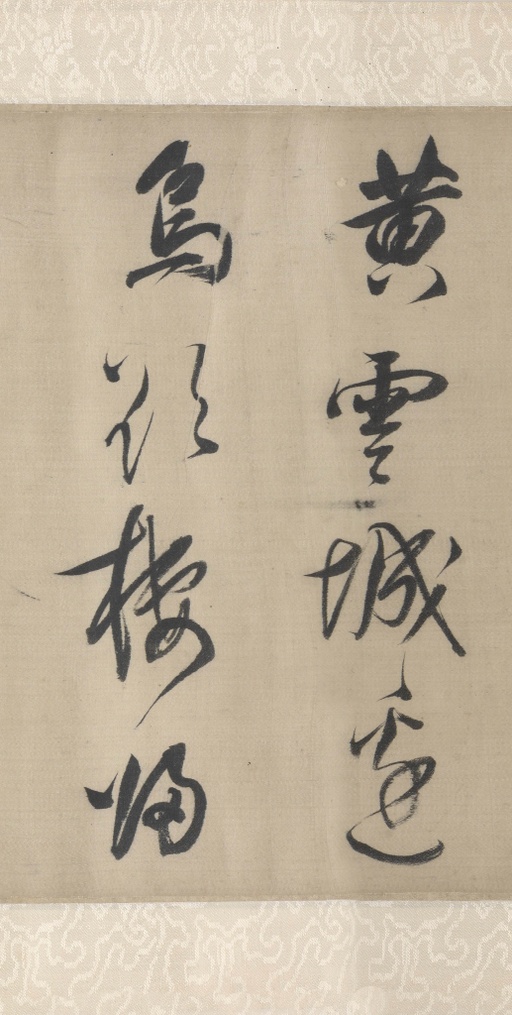 黄雲城邊
烏欲棲歸